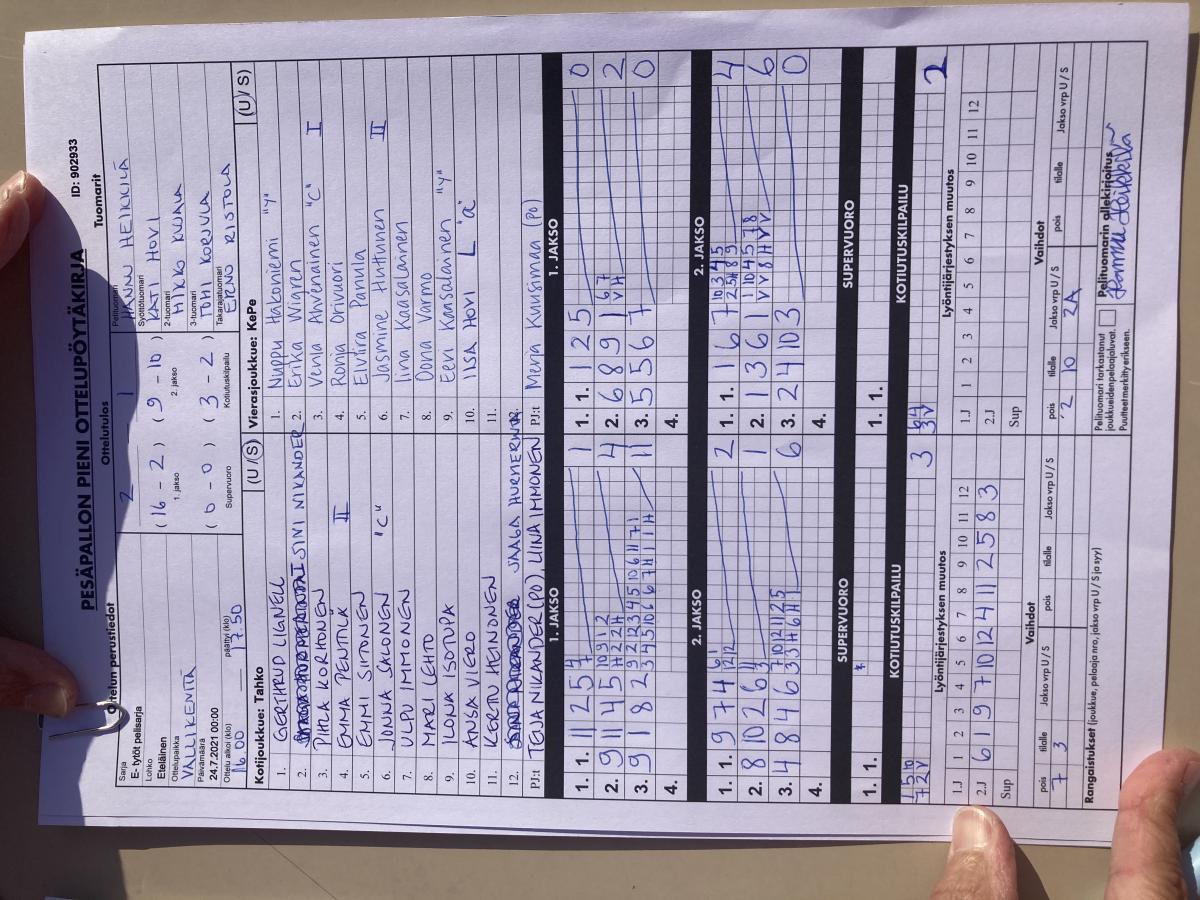 PESÄPALLON PIENI OTTELUPÖYTÄKIRJA ID: 902933
Ottelun perustiedot
Sarja
E- tytöt pelisarja
Lohko
Eteläinen
Ottelupaikka
VALLIKENTTÄ
Päivämäärä
24.7.2021 00:00
Ottelu alkoi (klo) päättyi (klo)
16.00 17.50
Ottelutulos
2 1
( 16 - 2 ) ( 9 - 10 )
1. jakso 2. jakso
( 0 - 0 ) ( 3 - 2 )
Supervuoro Kotiutuskilpailu
Tuomarit
Pelituomari
HANNU HEIKKILÄ
Syöttötuomari
KATI HOVI
2-tuomari
MIKKO KUJALA
3-tuomari
TOMI KORJULA
Takarajatuomari
EINO RISTOLA
Kotijoukkue: Tahko (U / S)
1. GERTHRUD LIGNELL
2. SINI NIKANDER
3. PIHLA KORHONEN
4. EMMA PENTTILÄ II
5. EMMI SIITONEN
6. JONNA SALONEN "C"
7. ULPU IMMONEN
8. MARI LEHTO
9. ILONA ISOTUPA
10. ANSA VIERO
11. KERTTU HEINONEN
12. JAAGA HURMERINTA
PJ:t TEIJA NIKANDER (PO) LIINA IMMONEN
Vierasjoukkue: KePe (U / S)
1. Nuppu Hakoniemi "Y"
2. Erika Wigren
3. Venla Ahvenainen "C" I
4. Ronja Orivuori
5. Elviira Pannula
6. Jasmine Huttunen II
7. Iina Kaasalainen
8. Oona Varmo
9. Eeri Kaasalainen "Y"
10. ILSA HOVI L "a"
11.
12.
PJ:t Meria Kuusimaa (PO)
1. JAKSO
1. 1. 11 2 5 4 1
2. 9 11 4 5 4
3. 9 1 8 2 11
4.
1. JAKSO
1. 1. 1 2 5 0
2. 6 8 9 1 2
3. 5 5 6 7 0
4.
2. JAKSO
1. 1. 9 7 4 2
2. 8 10 2 6 1
3. 4 8 4 6 6
4.
2. JAKSO
1. 1. 1 6 7 4
2. 1 3 6 1 6
3. 2 4 10 3 0
4.
SUPERVUORO
1. 1.
SUPERVUORO
1. 1.
KOTIUTUSKILPAILU
3
KOTIUTUSKILPAILU
2
Lyöntijärjestyksen muutos
1.J 1 2 3 4 5 6 7 8 9 10 11 12
2.J 6 1 9 7 10 12 4 11 2 5 8 3
Sup
Lyöntijärjestyksen muutos
1.J 1 2 3 4 5 6 7 8 9 10 11 12
2.J
Sup
Vaihdot
pois tilalle Jakso vrp U / S pois tilalle Jakso vrp U / S
7 3
Vaihdot
pois tilalle Jakso vrp U / S pois tilalle Jakso vrp U / S
2 10 2A
Rangaistukset (joukkue, pelaaja nro, jakso vrp U / S ja syy)
Pelituomari tarkastanut
joukkueiden pelaajaluvat.
Puutteet merkitty erikseen.
Pelituomarin allekirjoitus
Hannu Heikkilä